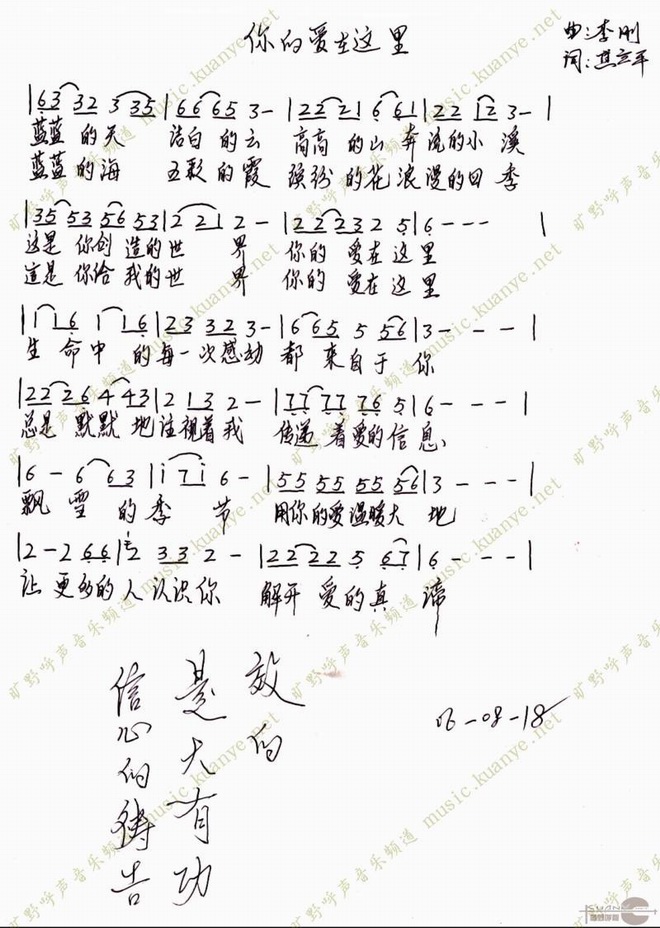 你的爱在这里
曲:李刚
词:其立平
|63 32 3 35|66 65 3-|22 21 6 61|22 12 3-|
蓝蓝 的天 洁白 的云 高高 的山 奔流的小 溪
蓝蓝 的海 五彩 的霞 缤纷 的花 浪漫的四 季
|35 53 56 53|2 21 2-|22 23 2 5|6---|
这是 你创 造的世 界 你的 爱在 这里
這是 你给 我的世 界 你的 爱在 这里
|1 16 1 16|23 32 3-|6 65 5 56|3---|
生 命中 的每一次感动 都 来自于 你
|22 26 4 43|2 13 2-|77 77 76 5|6---|
总是 默默 地注视着我 传递 着爱的信息、
|6-6 63|i 7i 6-|55 55 55 56|3---|
飘 雪 的季 节 用你的爱温暖大 地
|2-2 66|2 33 2-|22 22 5 67|6---|
让 更多的人认识你 解开 爱的真 谛
信心的祷告
是大有功
效的
06-08-18
旷野呼声音乐频道 music.kuanye.net